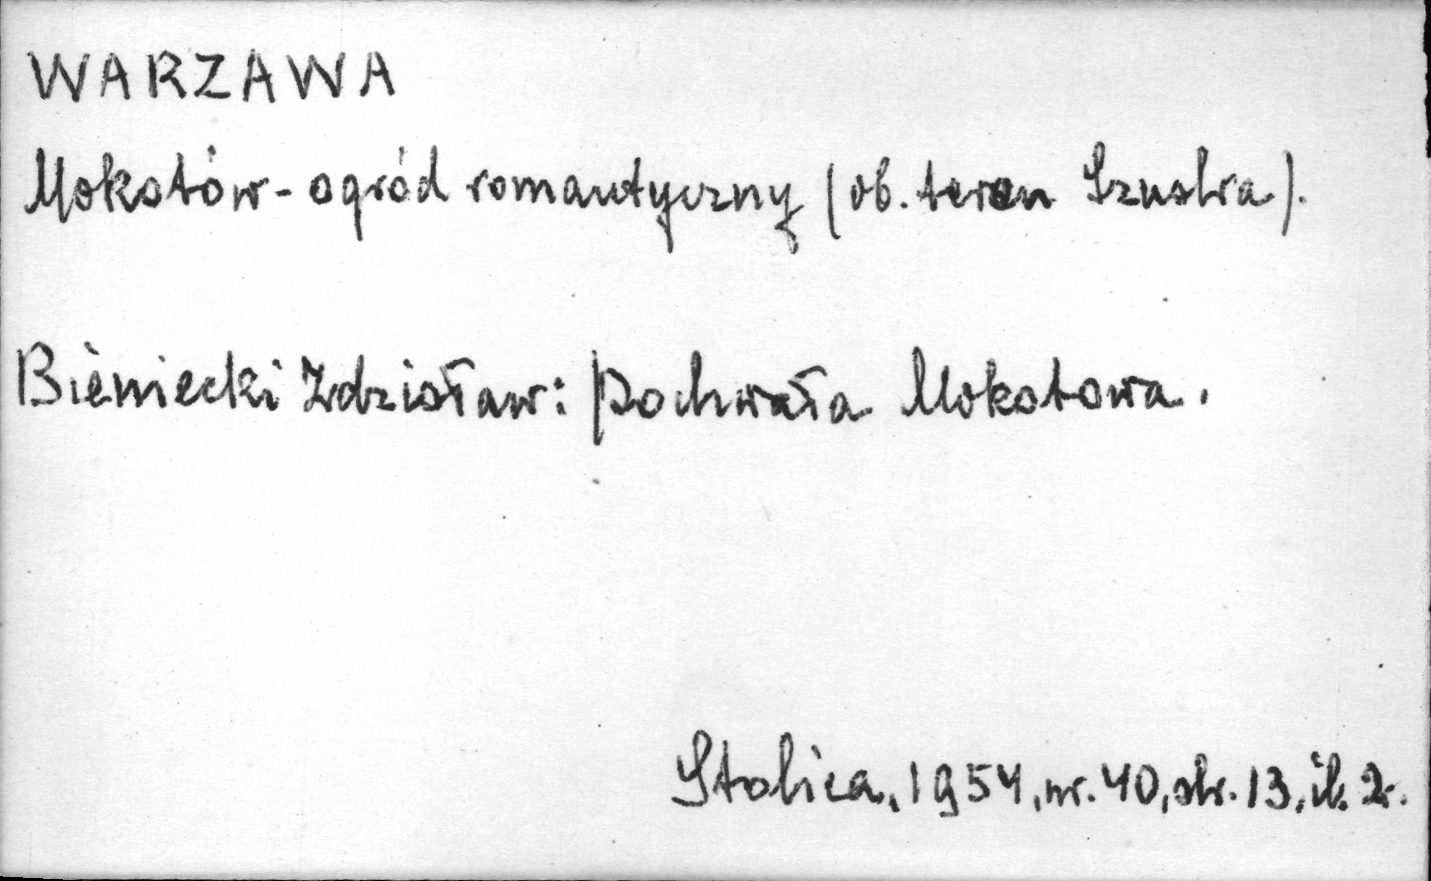 WARZAWA
Mokotów - ogród romantyczny (ob. teren Szustra).
Bieniecki Zdzisław: Pochwała Mokotowa.
Stolica, 1954, nr. 40, str. 13, il. 2.